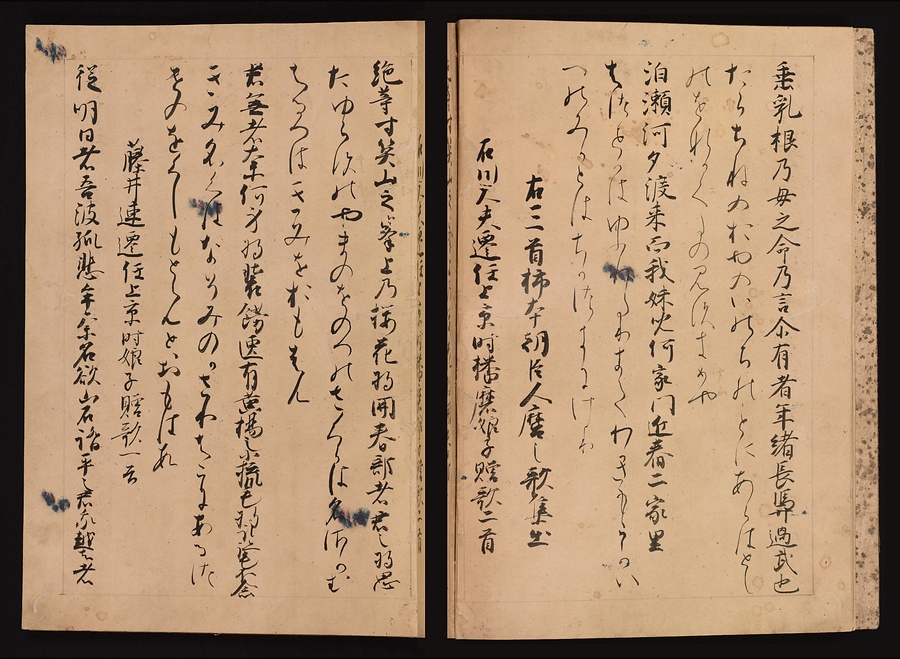 垂乳根乃母之命乃言尓有者年緒長馮過武也
たらちねのおやのいのちのことにあらはとし
のをなかく
泊瀬河夕渡来而我妹児何家門近舂二家里
はつせかはゆふわたりきてわきもこかい
つのみかとはちかつきにけり
右三首柿本朝臣人麿之歌集出
石川大夫遷任上京時播磨娘子贈歌二首
絶等寸笑山之峯上乃桜花将開春部者君之将思
たゆらきのやまのをのへのさくらはなさかむ
はるへはきみをおもはん
君無者奈何身将装餝匣有黄楊小梳毛将取跡毛不念
きみなくはなそみのかさらむくしけにあるつ
けのをくしもとらんとおもはれ
藤井連遷任上京時娘子贈歌一首
従明日者吾波孤悲牟奈名欲山石踏平之君我越去者